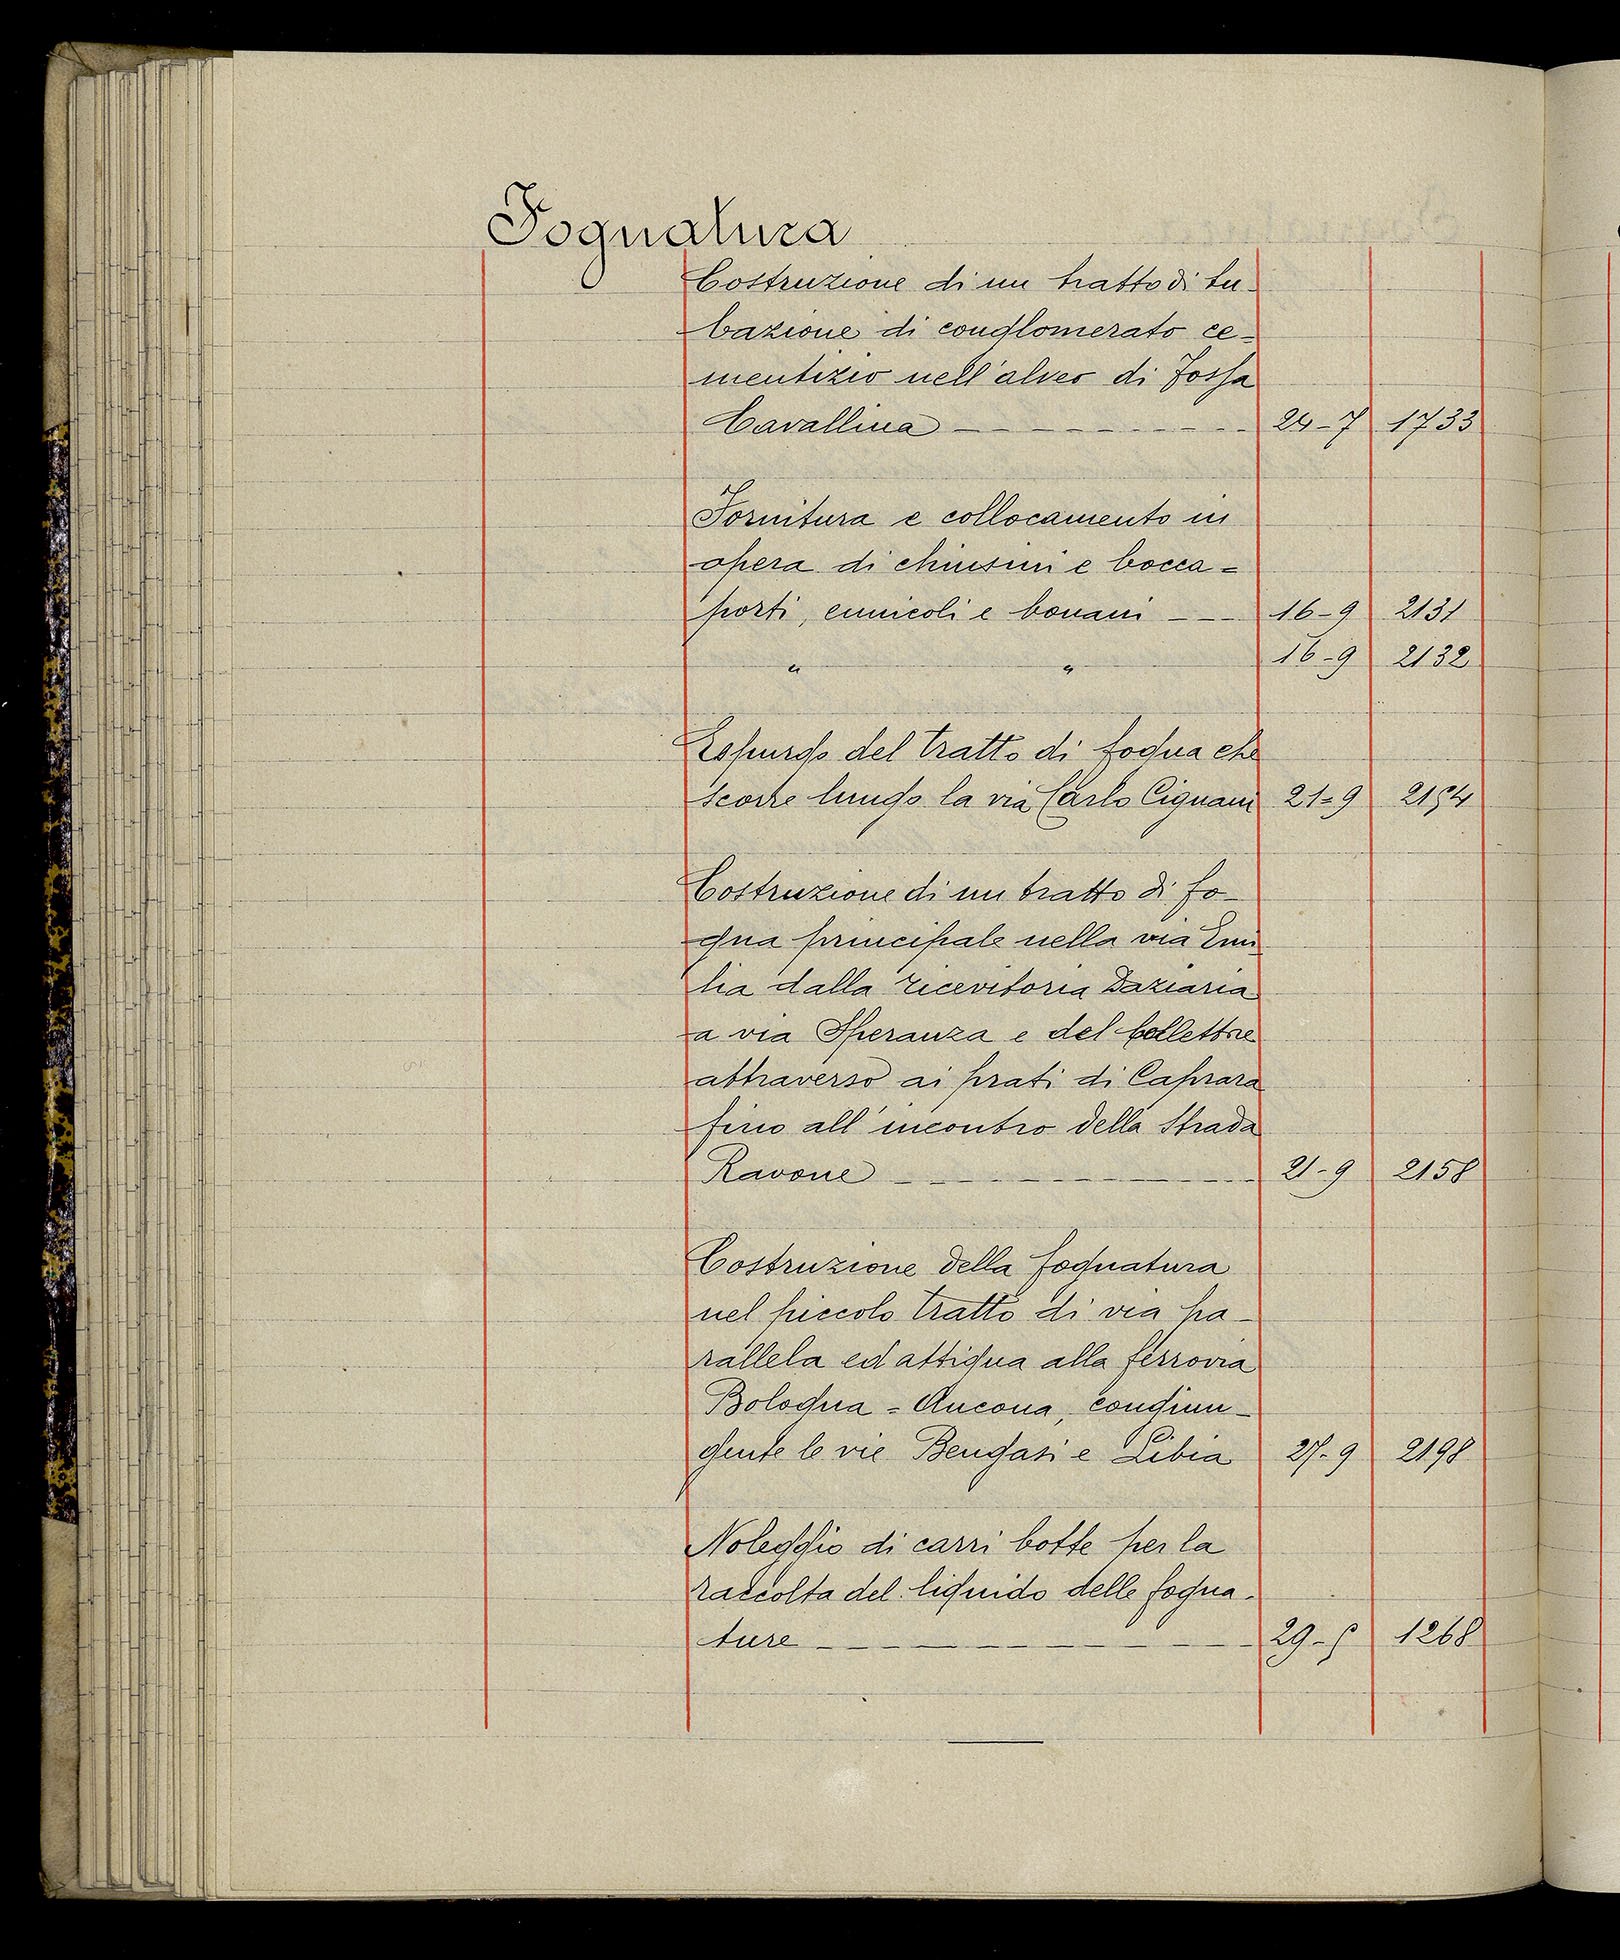 Fognatura
Costruzione di un tratto di tu-
bazione di conglomerato ce=
mentizio nell'alveo di Fossa
Cavallina 24-7 1733
Fornitura e collocamento in
opera di chiusini e bocca=
porti, cunicoli e bonani 16-9 2131
" " 16-9 2132
Espurgo del tratto di fogna che
scorre lungo la via Carlo Cignani 21=9 2154
Costruzione di un tratto di fo-
gna principale nella via Emi-
lia dalla ricevitoria Daziaria
a via Speranza e del Collettore
attraverso ai prati di Caprara
fino all'incontro della Strada
Ravone 21-9 2158
Costruzione della fognatura
nel piccolo tratto di via pa-
rallela ed attigua alla ferrovia
Bologna=Ancona, congiun-
gente le vie Bengasi e Libia 27-9 2198
Noleggio di carri botte per la
raccolta del liquido delle fogna-
ture 29-5 1268